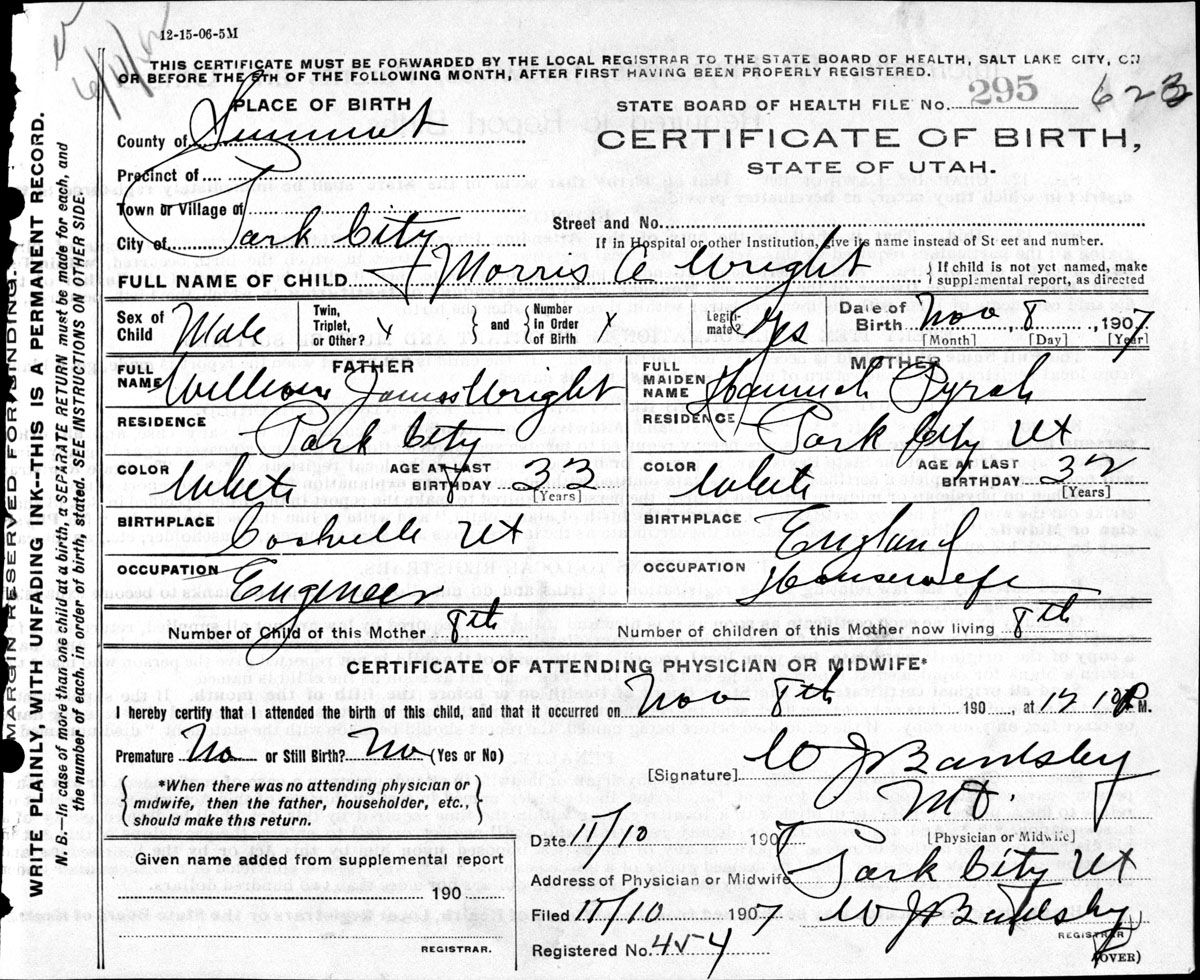 12-15-06-5M
THIS CERTIFICATE MUST BE FORWARDED BY THE LOCAL REGISTRAR TO THE STATE BOARD OF HEALTH, SALT LAKE CITY, ON
OR BEFORE THE 5TH OF THE FOLLOWING MONTH, AFTER FIRST HAVING BEEN PROPERLY REGISTERED.
PLACE OF BIRTH
STATE BOARD OF HEALTH FILE No. 295 623
County of Summit
CERTIFICATE OF BIRTH,
STATE OF UTAH.
Precinct of
Town or Village of
Street and No.
City of Park City
If in Hospital or other Institution, give its name instead of Street and number.
FULL NAME OF CHILD Morris C Wright
If child is not yet named, make
supplemental report, as directed
Sex of Child Male
Twin, Triplet, or Other? x and Number in Order of Birth x
Legitimate? Yes
Date of Birth Nov 8, 1907
[Month] [Day] [Year]
FATHER
FULL NAME William James Wright
RESIDENCE Park City
COLOR White
AGE AT LAST BIRTHDAY 33
[Years]
BIRTHPLACE Coalville Ut
OCCUPATION Engineer
MOTHER
FULL MAIDEN NAME Hannah Pyrah
RESIDENCE Park City Ut
COLOR White
AGE AT LAST BIRTHDAY 32
[Years]
BIRTHPLACE England
OCCUPATION Housewife
Number of Child of this Mother 8th
Number of children of this Mother now living 8th
CERTIFICATE OF ATTENDING PHYSICIAN OR MIDWIFE*
I hereby certify that I attended the birth of this child, and that it occurred on Nov 8th 190 at 12 10 P. M.
Premature No or Still Birth? No (Yes or No)
[Signature] W J Bardsley
MD
[Physician or Midwife]
*When there was no attending physician or
midwife, then the father, householder, etc.,
should make this return.
Date 11/10 1907
Given name added from supplemental report
190
Address of Physician or Midwife Park City Ut
Filed 11/10 1907 W J Bardsley
REGISTRAR
REGISTRAR.
Registered No. 454
(OVER)
MARGIN RESERVED FOR BINDING.
WRITE PLAINLY WITH UNFADING INK--THIS IS A PERMANENT RECORD.
N. B.—In case of more than one child at a birth, a SEPARATE RETURN must be made for each, and
the number of each, in order of birth, stated. SEE INSTRUCTIONS ON OTHER SIDE.